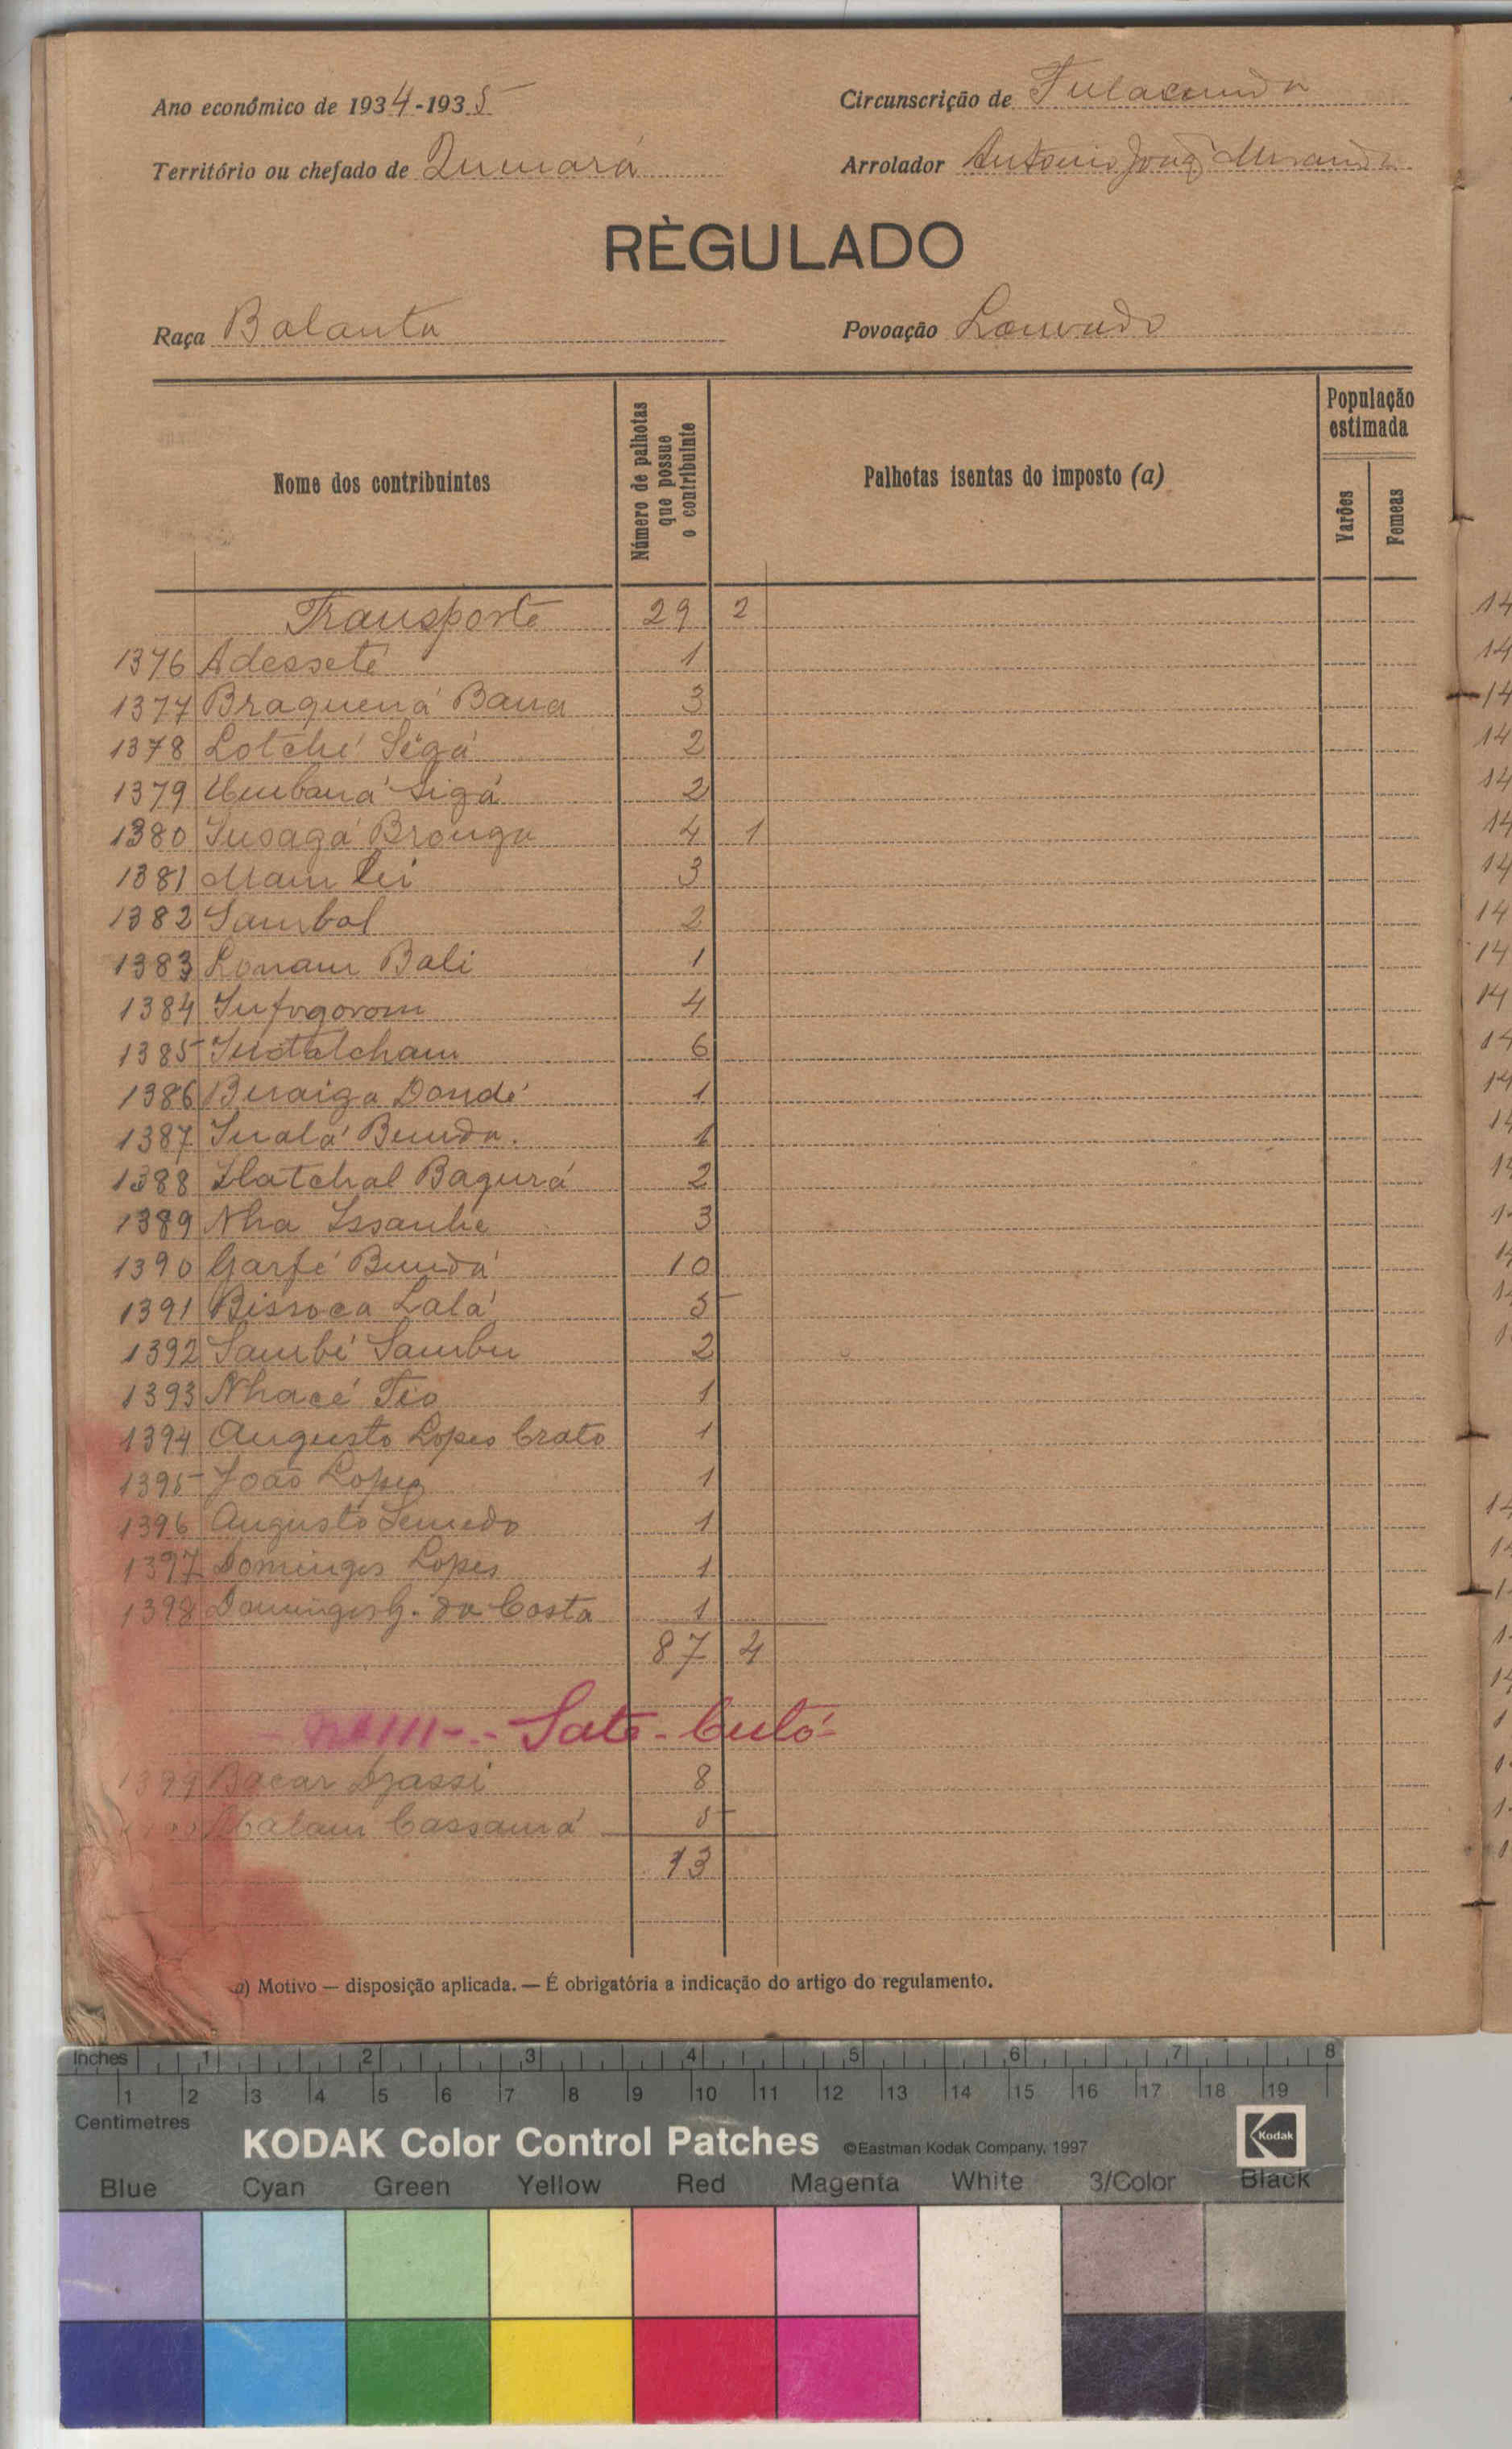 Ano económico de 1934-1935
Circunscrição de Fulacunda
Território ou chefado de Quinará
Arrolador Antonio Joaq Miranda
RÈGULADO
Raça Balanta
Povoação Louvado
Nome dos contribuintes
Número de palhotas que possue o contribuinte
Palhotas isentas do imposto (a)
População estimada
Varões
Femeas
Transporte 29 2
1376 Adesseté 1
1377 Braquená Bana 3
1378 Lotché Sigá 2
1379 Umbaná Sigá 2
1380 Iusagá Bronga 4 1
1381 Mam Lei 3
1382 Sambal 2
1383 Lonam Bali 1
1384 Infogorom 4
1385 6
1386 Dondé 1
1387 Inalá Bunda. 1
1388 Bagurá 2
1389 Nha Issanhe 3
1390 Garfé Bundá 10
1391 Bissoca Lalá 5
1392 Sambé Sambu 2
1393 Nhacé Tio 1
1394 Augusto Lopes Crato 1
1395 João Lopes 1
1396 Augusto Semedo 1
1397 Domingos Lopes 1
1398 Domingos G. da Costa 1
87 4
Sate-Cutó
1399 Bacar Djassi 8
Malam Cassamá 5
13
a) Motivo — disposição aplicada. — É obrigatória a indicação do artigo do regulamento.
Inches 1 2 3 4 5 6 7 8
1 2 3 4 5 6 7 8 9 10 11 12 13 14 15 16 17 18 19
Centimetres
KODAK Color Control Patches ©Eastman Kodak Company, 1997 Kodak
Blue Cyan Green Yellow Red Magenta White 3/Color Black